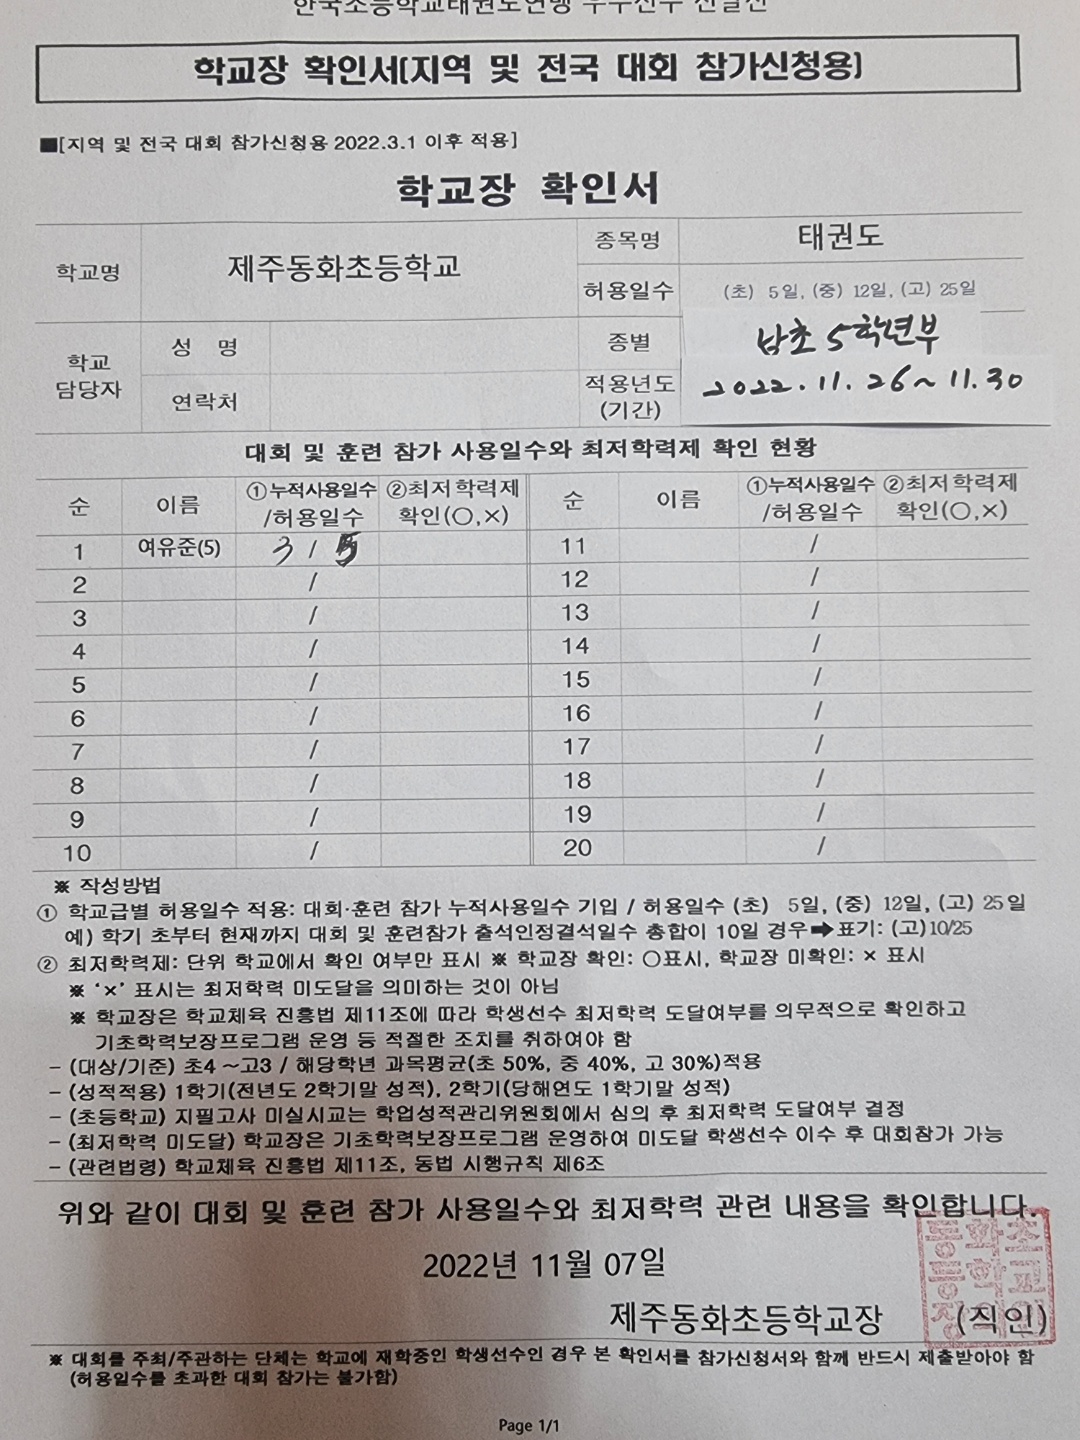 한국초등학교태권도연맹 우수선수 선발전
학교장 확인서(지역 및 전국 대회 참가신청용)
■[지역 및 전국 대회 참가신청용 2022.3.1 이후 적용]
학교장 확인서
학교명 제주동화초등학교 종목명 태권도
허용일수 (초) 5일, (중) 12일, (고) 25일
학교 담당자 성 명 종별 남초 5학년부
연락처 적용년도 (기간) 2022.11.26~11.30
대회 및 훈련 참가 사용일수와 최저학력제 확인 현황
순 이름 ①누적사용일수 /허용일수 ②최저학력제 확인(○,×) 순 이름 ①누적사용일수 /허용일수 ②최저학력제 확인(○,×)
1 여유준(5) 3 / 5 11 /
2 / 12 /
3 / 13 /
4 / 14 /
5 / 15 /
6 / 16 /
7 / 17 /
8 / 18 /
9 / 19 /
10 / 20 /
※ 작성방법
① 학교급별 허용일수 적용: 대회·훈련 참가 누적사용일수 기입 / 허용일수 (초) 5일, (중) 12일, (고) 25일
예) 학기 초부터 현재까지 대회 및 훈련참가 출석인정결석일수 총합이 10일 경우➡표기: (고)10/25
② 최저학력제: 단위 학교에서 확인 여부만 표시 ※ 학교장 확인: ○표시, 학교장 미확인: × 표시
※ '×' 표시는 최저학력 미도달을 의미하는 것이 아님
※ 학교장은 학교체육 진흥법 제11조에 따라 학생선수 최저학력 도달여부를 의무적으로 확인하고
기초학력보장프로그램 운영 등 적절한 조치를 취하여야 함
- (대상/기준) 초4 ~고3 / 해당학년 과목평균(초 50%, 중 40%, 고 30%)적용
- (성적적용) 1학기(전년도 2학기말 성적), 2학기(당해연도 1학기말 성적)
- (초등학교) 지필고사 미실시교는 학업성적관리위원회에서 심의 후 최저학력 도달여부 결정
- (최저학력 미도달) 학교장은 기초학력보장프로그램 운영하여 미도달 학생선수 이수 후 대회참가 가능
- (관련법령) 학교체육 진흥법 제11조, 동법 시행규칙 제6조
위와 같이 대회 및 훈련 참가 사용일수와 최저학력 관련 내용을 확인합니다.
2022년 11월 07일
제주동화초등학교장 (직인)
동화초
등학교
장의인
※ 대회를 주최/주관하는 단체는 학교에 재학중인 학생선수인 경우 본 확인서를 참가신청서와 함께 반드시 제출받아야 함
(허용일수를 초과한 대회 참가는 불가함)
Page 1/1